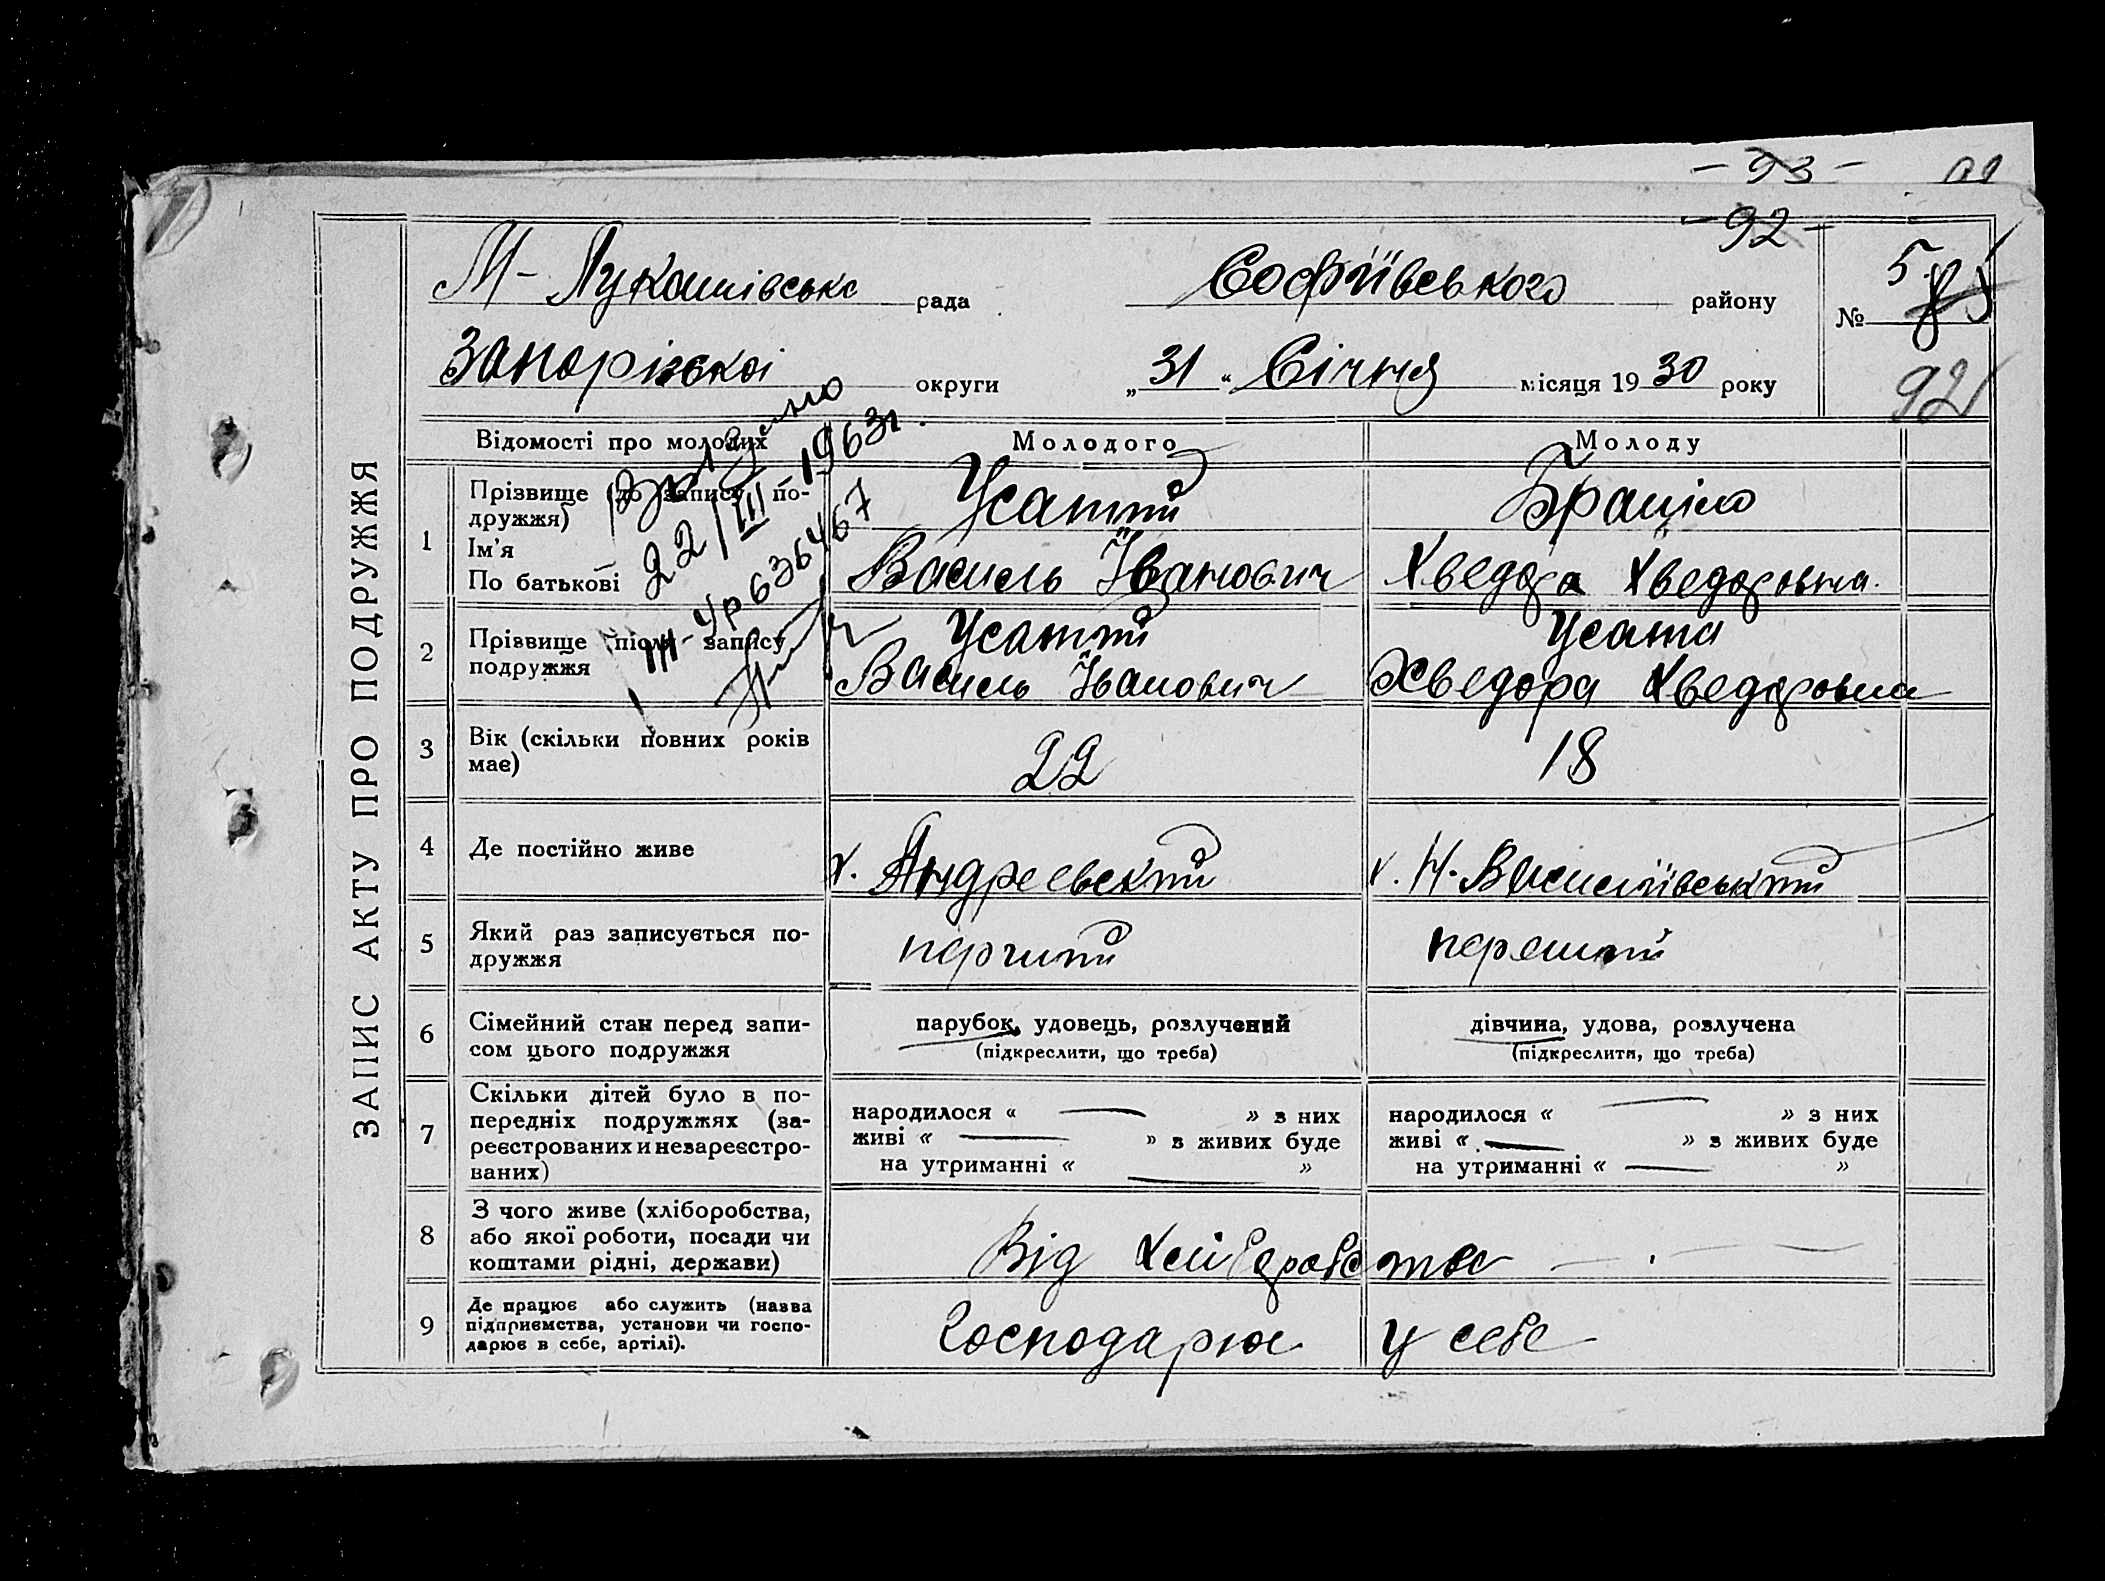 - 93 -
- 92 -
М - Лукашівська рада Софіївського району № 5
Запорізької округи „31“ Січня місяця 19 30 року
92
ЗАПИС АКТУ ПРО ПОДРУЖЖЯ
Відомості про молодих Молодого Молоду
1 Прізвище (до запису подружжя) Усатий Браціло
Ім'я
По батькові Василь Іванович Хведора Хведоровна
22/III-1963г.
III-УР 636467
2 Прізвище після запису подружжя Усатий Усата
Василь Іванович Хведора Хведоровна
3 Вік (скільки повних років має) 22 18
4 Де постійно живе х. Андреевский х. Н-Василівський
5 Який раз записується подружжя перший перший
6 Сімейний стан перед записом цього подружжя парубок, удовець, розлучений дівчина, удова, розлучена
(підкреслити, що треба) (підкреслити, що треба)
7 Скільки дітей було в попередніх подружжях (зареєстрованих и незареєстрованих)
народилося « — » з них народилося « — » з них
живі « — » з живих буде живі « — » з живих буде
на утриманні « — » на утриманні « — »
8 З чого живе (хліборобства, або якої роботи, посади чи коштами рідні, держави) Від хліборобства — . —
9 Де працює або служить (назва підприємства, установи чи господарює в себе, артілі). Господарює у себе